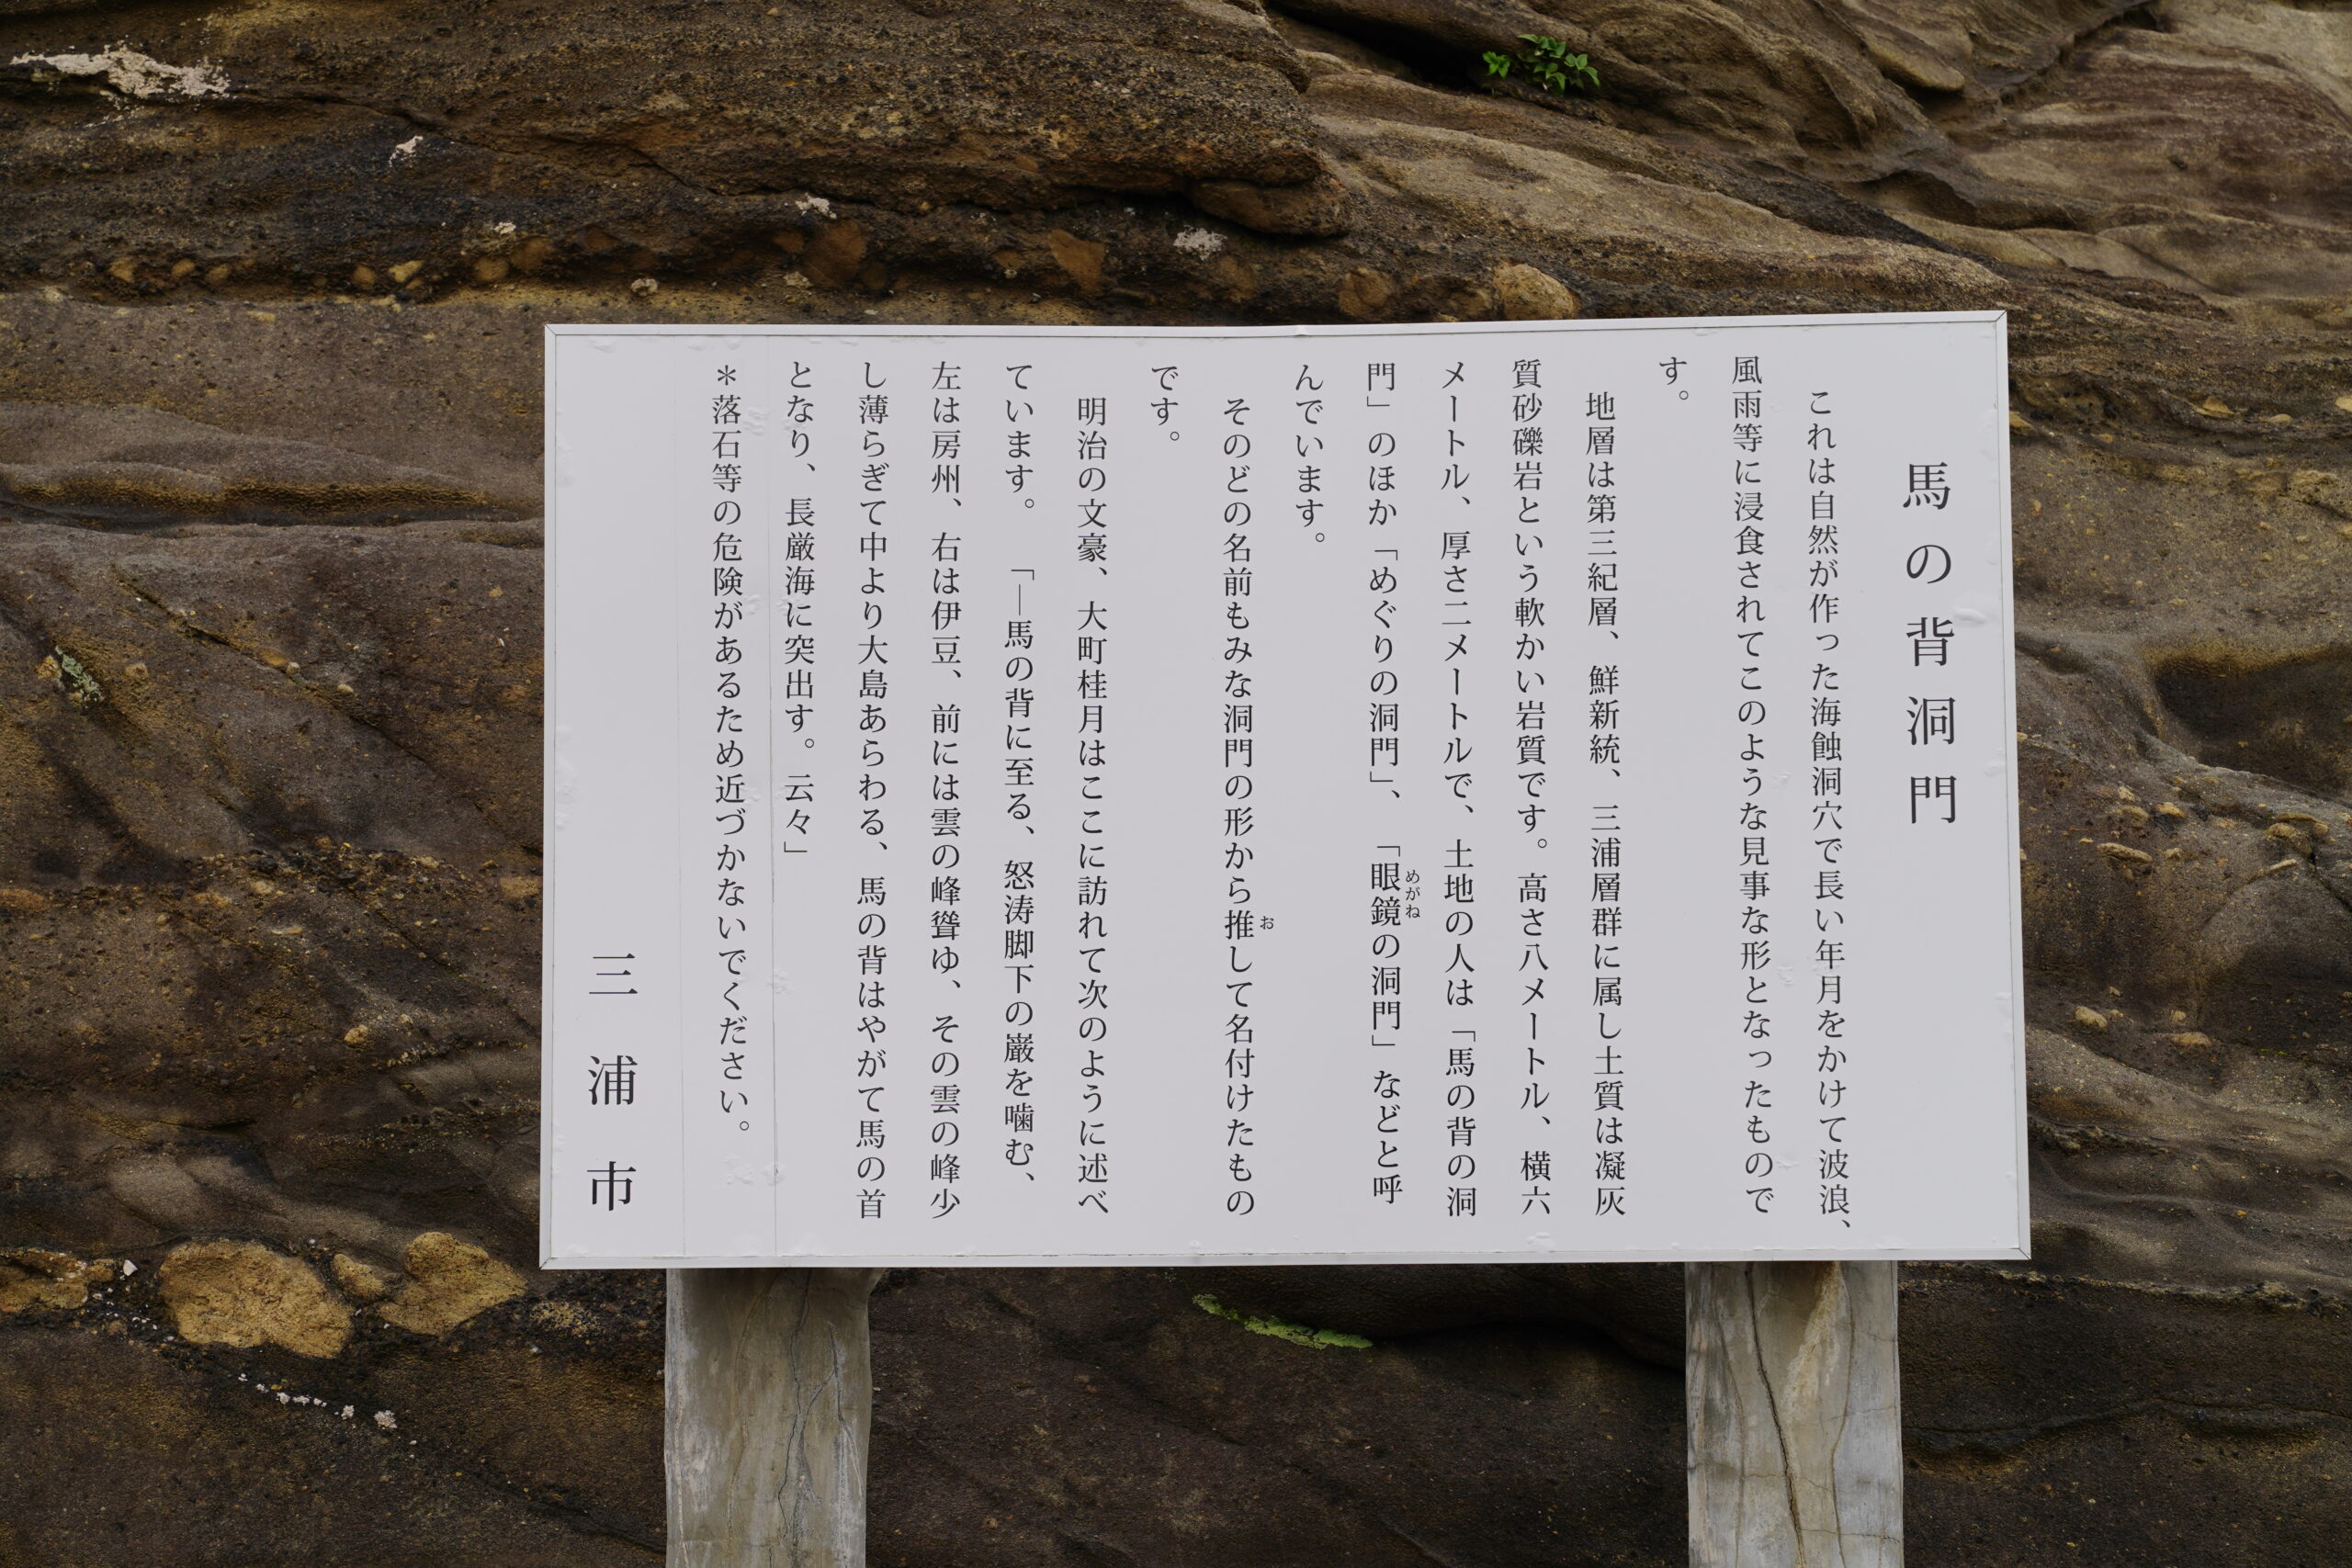 馬の背洞門
これは自然が作った海蝕洞穴で長い年月をかけて波浪、
風雨等に浸食されてこのような見事な形となったもので
す。
地層は第三紀層、鮮新統、三浦層群に属し土質は凝灰
質砂礫岩という軟かい岩質です。高さ八メートル、横六
メートル、厚さ二メートルで、土地の人は「馬の背の洞
門」のほか「めぐりの洞門」、「眼鏡の洞門」などと呼
めがね
んでいます。
そのどの名前もみな洞門の形から推して名付けたもの
お
です。
明治の文豪、大町桂月はここに訪れて次のように述べ
ています。「―馬の背に至る、怒涛脚下の巌を噛む、
左は房州、右は伊豆、前には雲の峰聳ゆ、その雲の峰少
し薄らぎて中より大島あらわる、馬の背はやがて馬の首
となり、長厳海に突出す。云々」
＊落石等の危険があるため近づかないでください。
三浦市